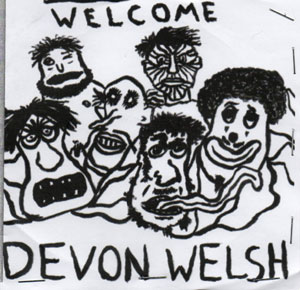 WELCOME
DEVON WELSH